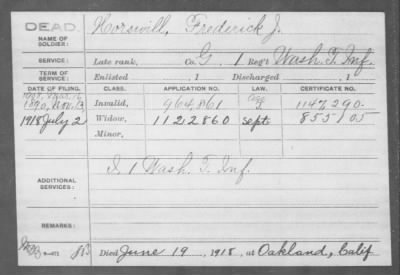 DEAD.
NAME OF SOLDIER: Horswill, Frederick J.
SERVICE: Late rank, Co. G, 1 Reg't Wash. T. Inf.
TERM OF SERVICE: Enlisted , 1 Discharged , 1
DATE OF FILING. CLASS. APPLICATION NO. LAW. CERTIFICATE NO.
1890, Nov. 13 Invalid, 964,861 1147290.
1918 July 2 Widow, 1122860 Sept 855105
Minor,
ADDITIONAL SERVICES: I, 1 Wash. T. Inf.
REMARKS:
Died June 19, 1918, at Oakland, Calif